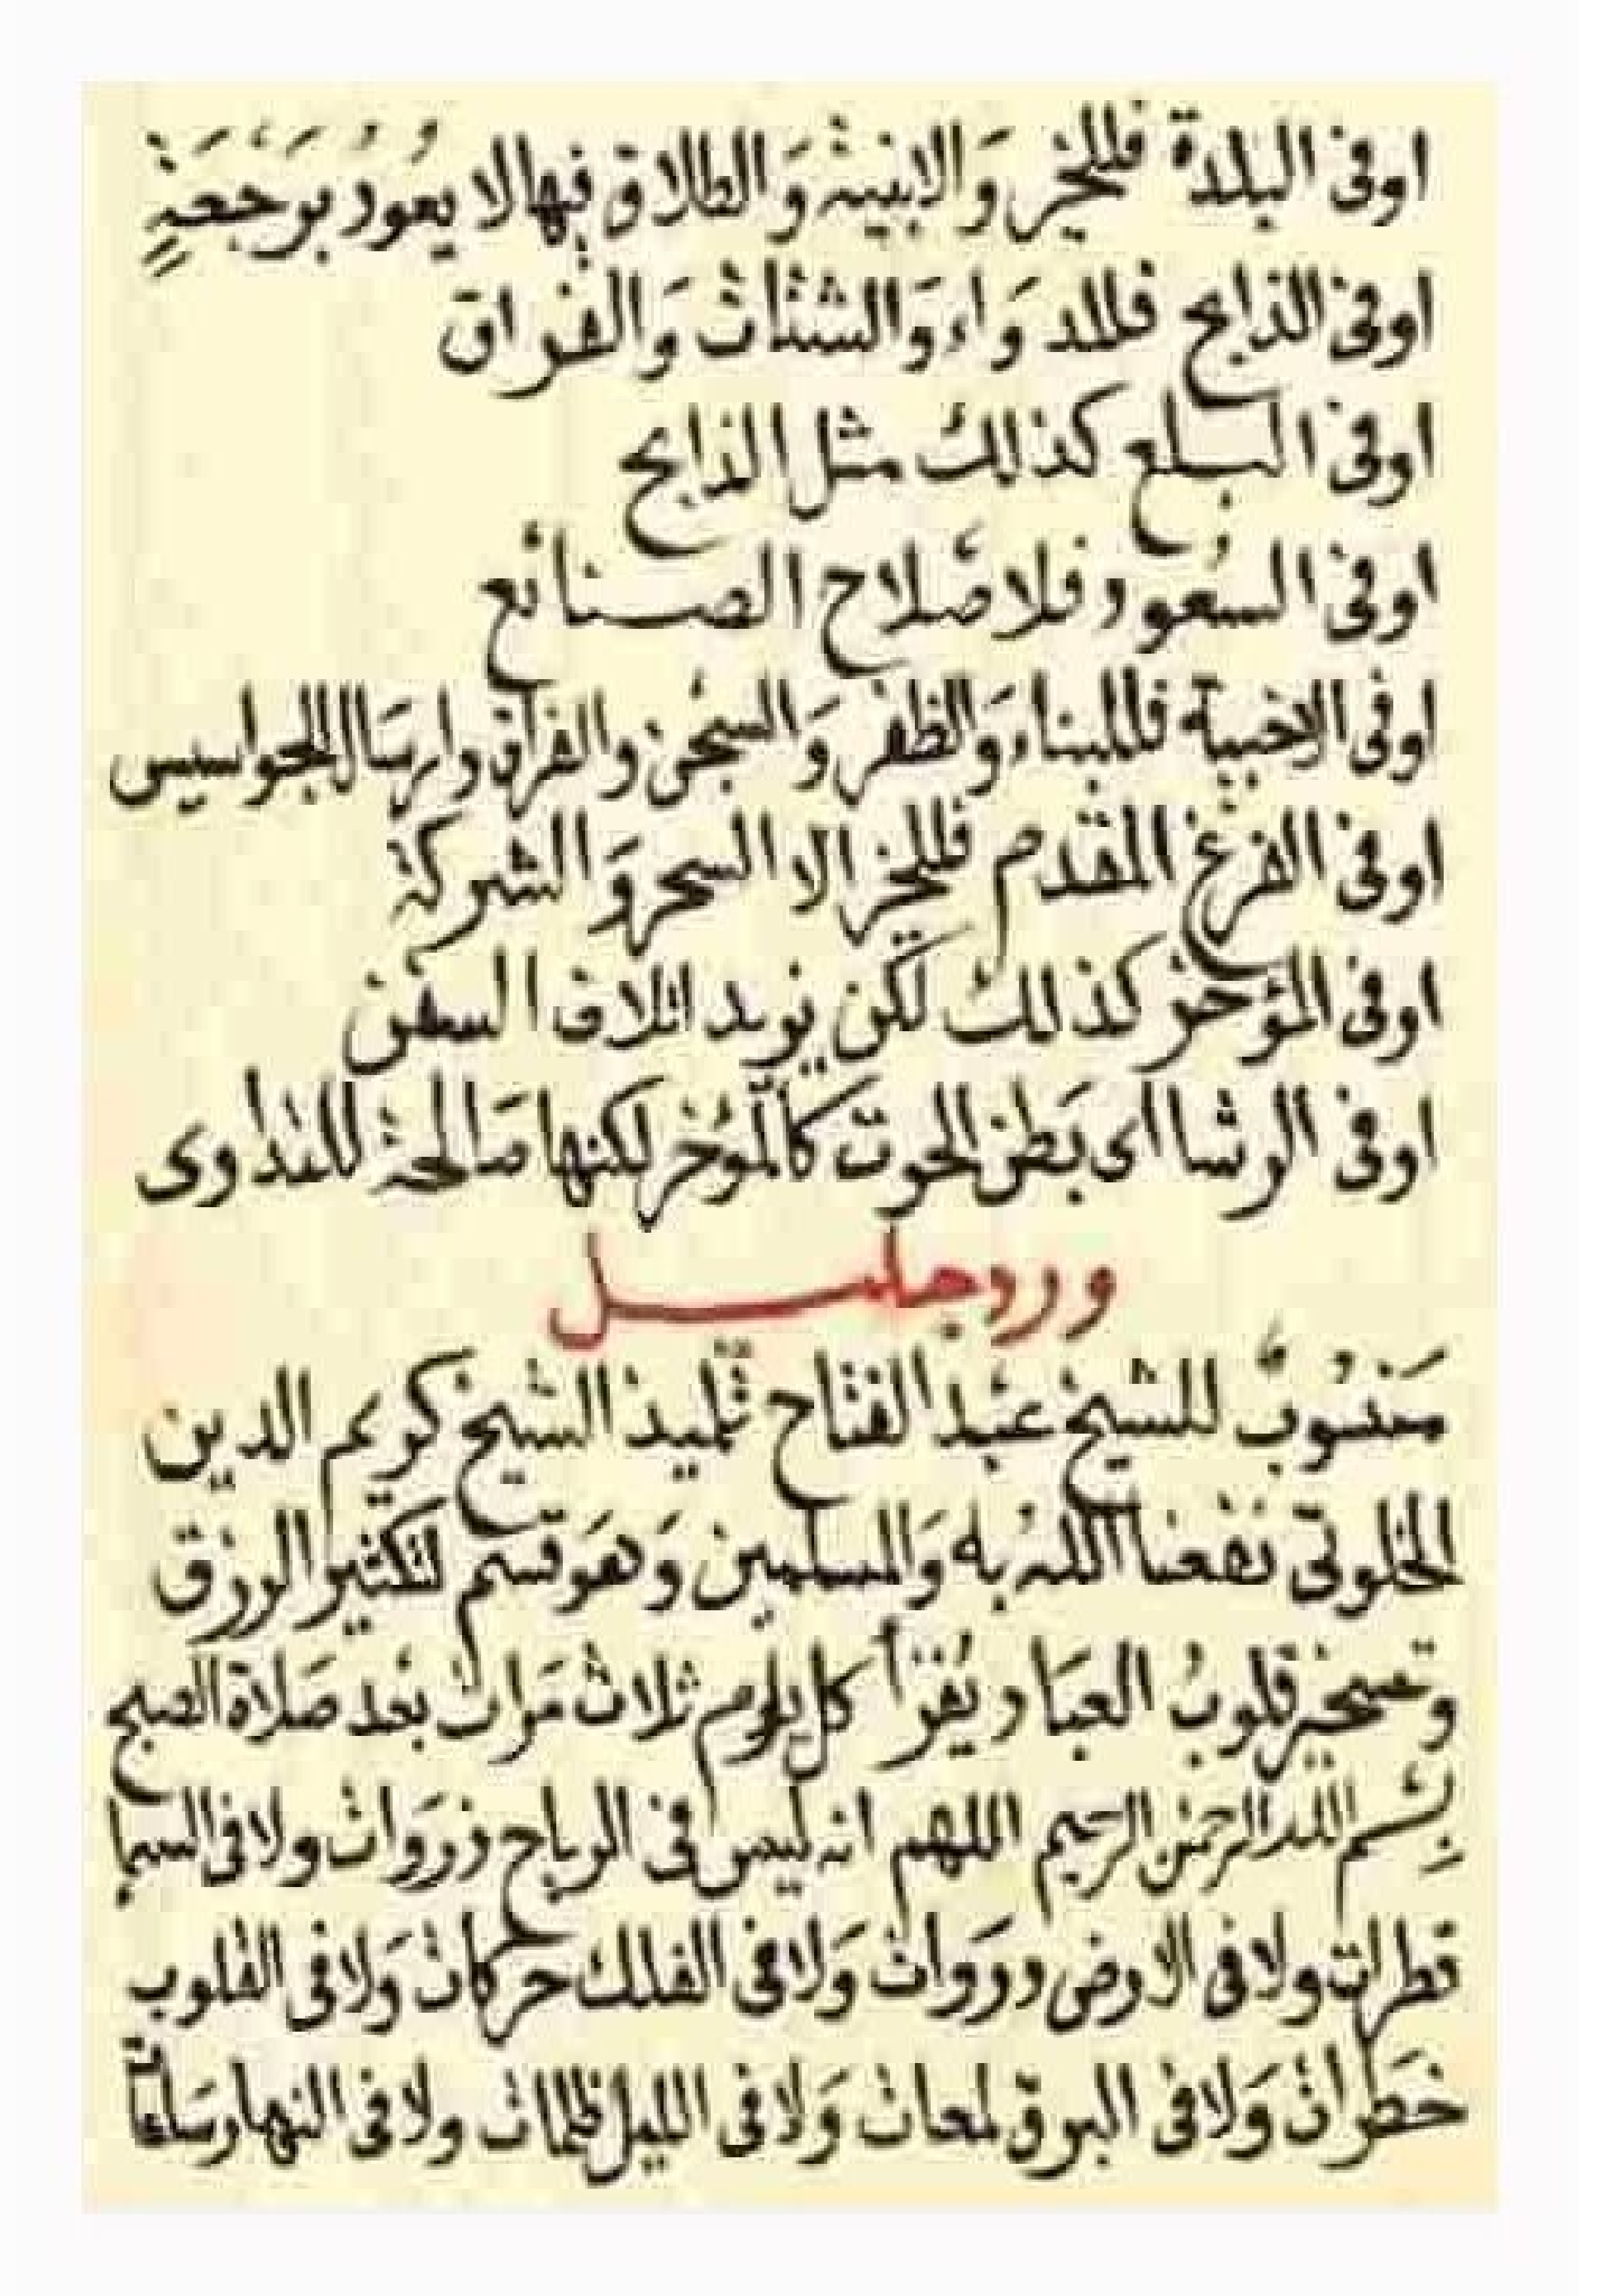 اوفى البلدة فللخير وَالابنية وَالطلاق فيها لا يعود برجعةٍ
اوفى الذابح فللدوَاء وَالشتات وَالفراق
اوفى البلع كذلك مثل الذابح
اوفى السعود فلاصلاح الصنائع
اوفى الاخبية فللبناء وَالظفر وَالسجن والفراق وارسال الجواسيس
اوفى الفرغ المقدم فللخير الا السحر وَالشركة
اوفى المؤخر كذلك لكن يزيد اتلاف السفن
اوفى الرشا اى بَطن الحوت كالمؤخر لكنها صَالحة للتداوى
ورد جليل
مَنسُوبٌ للشيخ عبد الفتاح تلميذ الشيخ كريم الدين
الخلوتى نفعنا الله به وَالمسلمين وَهوَ قسم لتكثير الرزق
وتسخير قلوبُ العبَاد يُقرأ كل يوم ثلاث مَرات بَعد صَلاة الصبح
بِسْم الله الرحمن الرحيم اللهم انه ليس فى الرياح ذروَات ولا فى السما
قطرات ولا فى الارض دورَوات وَلا فى الفلك حركات وَلا فى القلوب
خطرات وَلا فى البرق لمعات وَلا فى الليل ظلمات ولا فى النهار سَاعاة